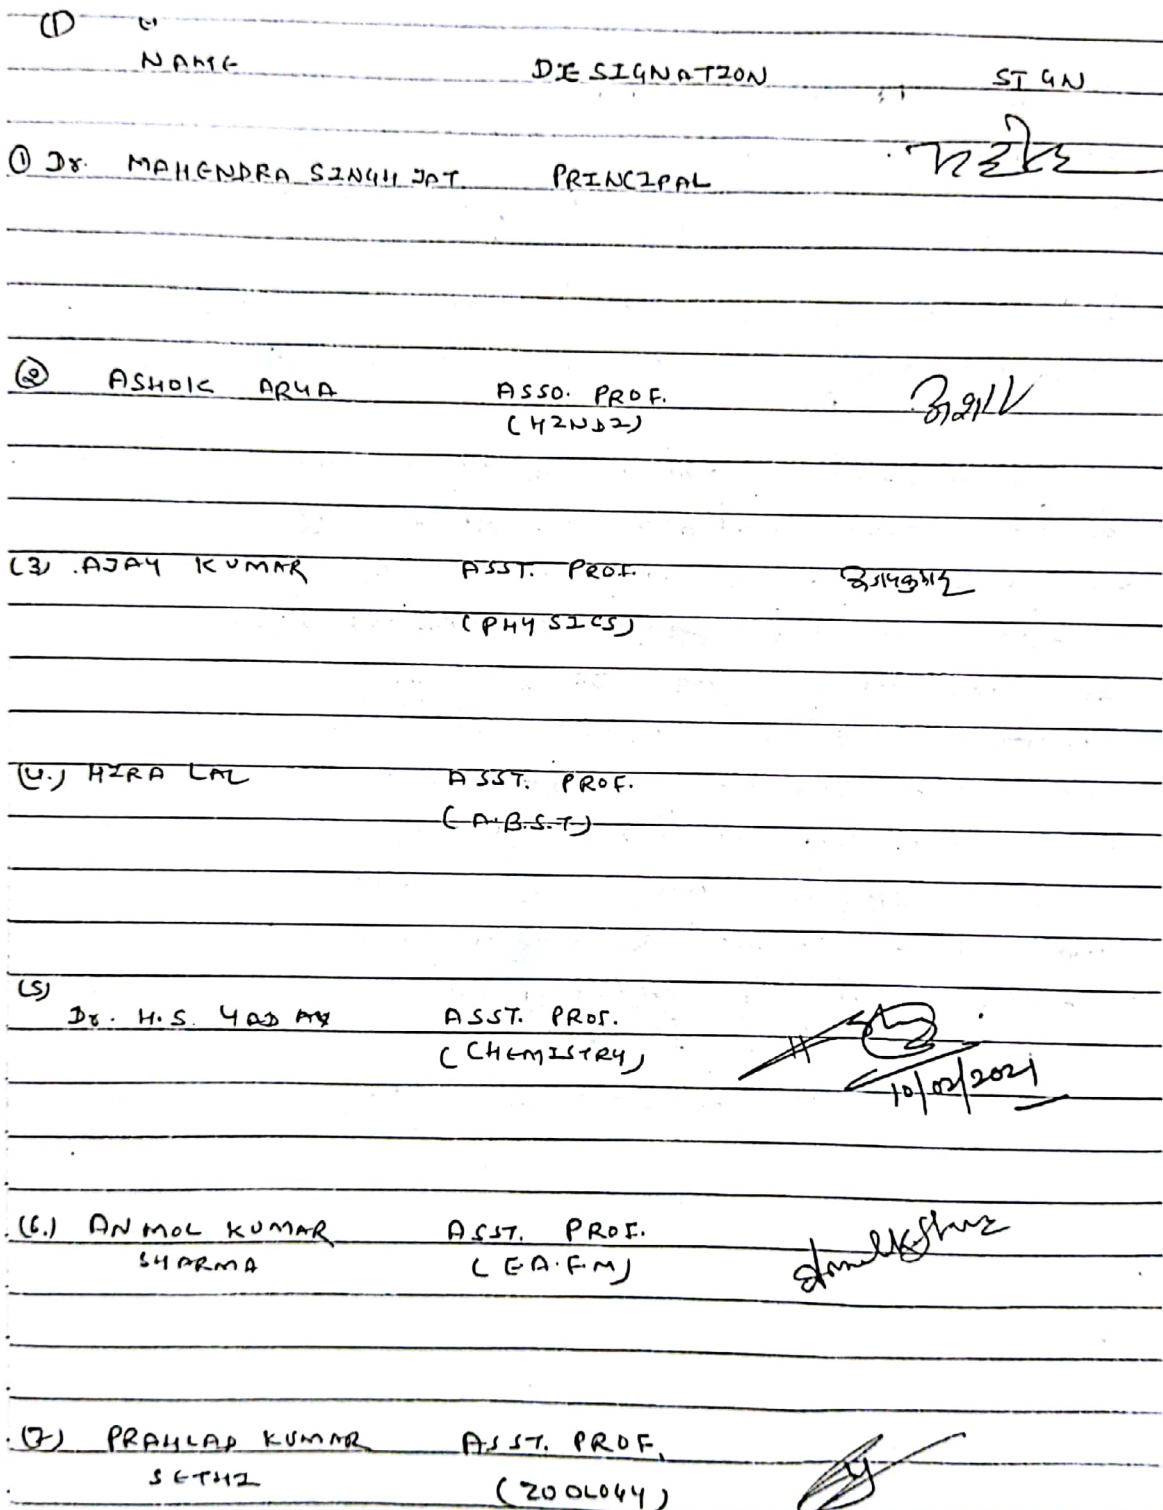 (1)
NAME DESIGNATION SIGN
① Dr. MAHENDRA SINGH JAT PRINCIPAL
② ASHOK ARYA ASSO. PROF.
(HINDI)
(3) AJAY KUMAR ASST. PROF. अजयकुमार
(PHYSICS)
(4.) HIRA LAL ASST. PROF.
(A.B.S.T)
(5)
Dr. H.S. YADAV ASST. PROF.
(CHEMISTRY)
10/02/2021
(6.) ANMOL KUMAR ASST. PROF.
SHARMA (E.A.F.M)
(7) PRAHLAD KUMAR ASST. PROF.
SETHI (ZOOLOGY)